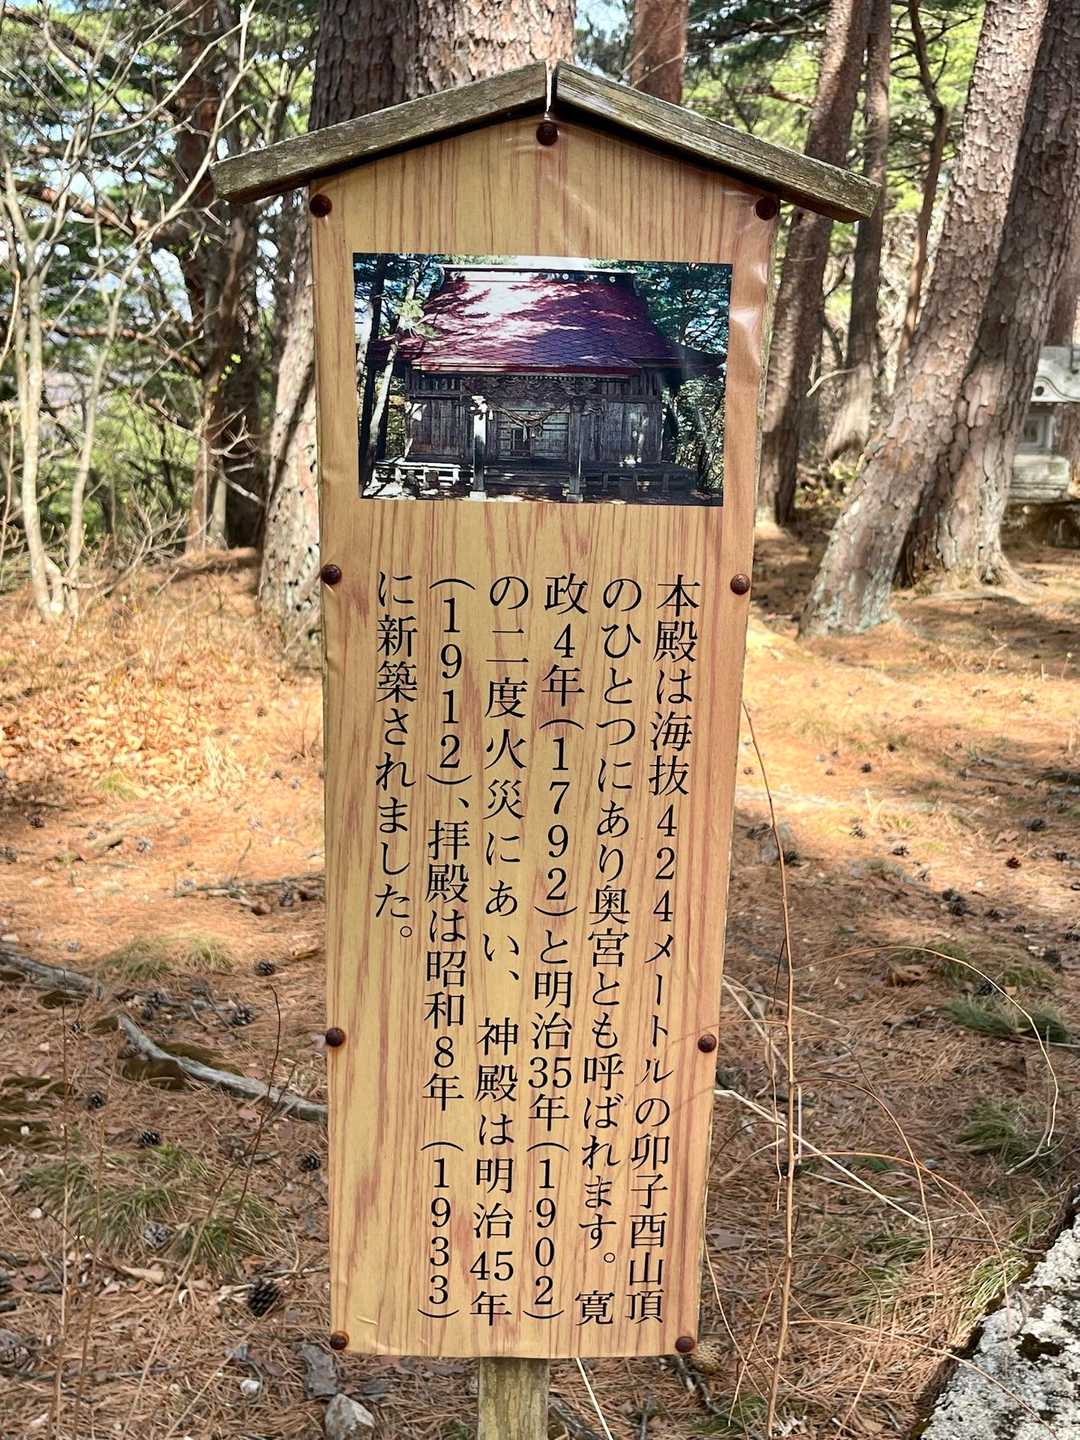 本殿は海抜424メートルの卯子酉山頂
のひとつにあり奥宮とも呼ばれます。寛
政4年(1792)と明治35年(1902)
の二度火災にあい、神殿は明治45年
(1912)、拝殿は昭和8年(1933)
に新築されました。